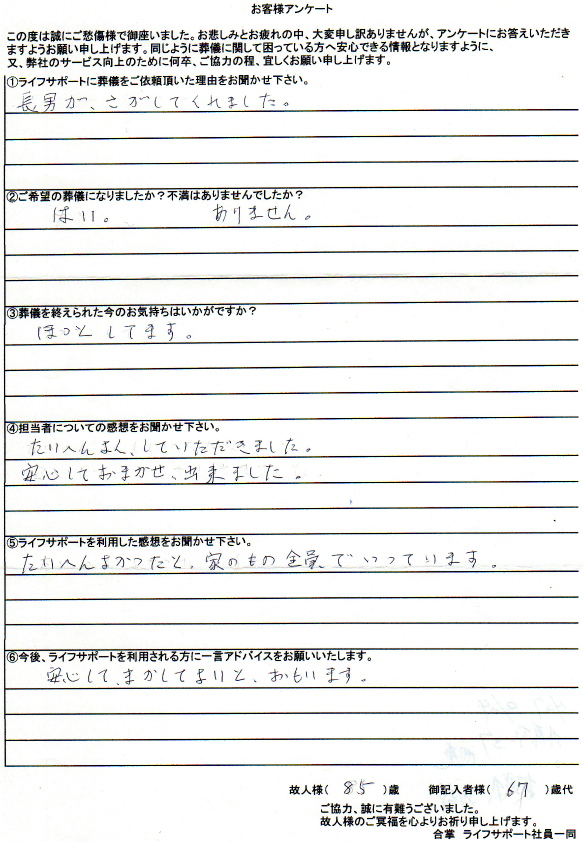 お客様アンケート
この度は誠にご愁傷様で御座いました。お悲しみとお疲れの中、大変申し訳ありませんが、アンケートにお答えいただき
ますようお願い申し上げます。同じように葬儀に関して困っている方へ安心できる情報となりますように、
又、弊社のサービス向上のために何卒、ご協力の程、宜しくお願い申し上げます。
①ライフサポートに葬儀をご依頼頂いた理由をお聞かせ下さい。
長男が、さがしてくれました。
②ご希望の葬儀になりましたか？不満はありませんでしたか？
はい。 ありません。
③葬儀を終えられた今のお気持ちはいかがですか？
ほっと してます。
④担当者についての感想をお聞かせ下さい。
たいへんよく、していただきました。
安心しておまかせ、出来ました。
⑤ライフサポートを利用した感想をお聞かせ下さい。
たいへんよかったと、家のもの全員でいっています。
⑥今後、ライフサポートを利用される方に一言アドバイスをお願いいたします。
安心して、まかしてよいと、おもいます。
故人様( 85 )歳 御記入者様( 67 )歳代
ご協力、誠に有難うございました。
故人様のご冥福を心よりお祈り申し上げます。
合掌 ライフサポート社員一同